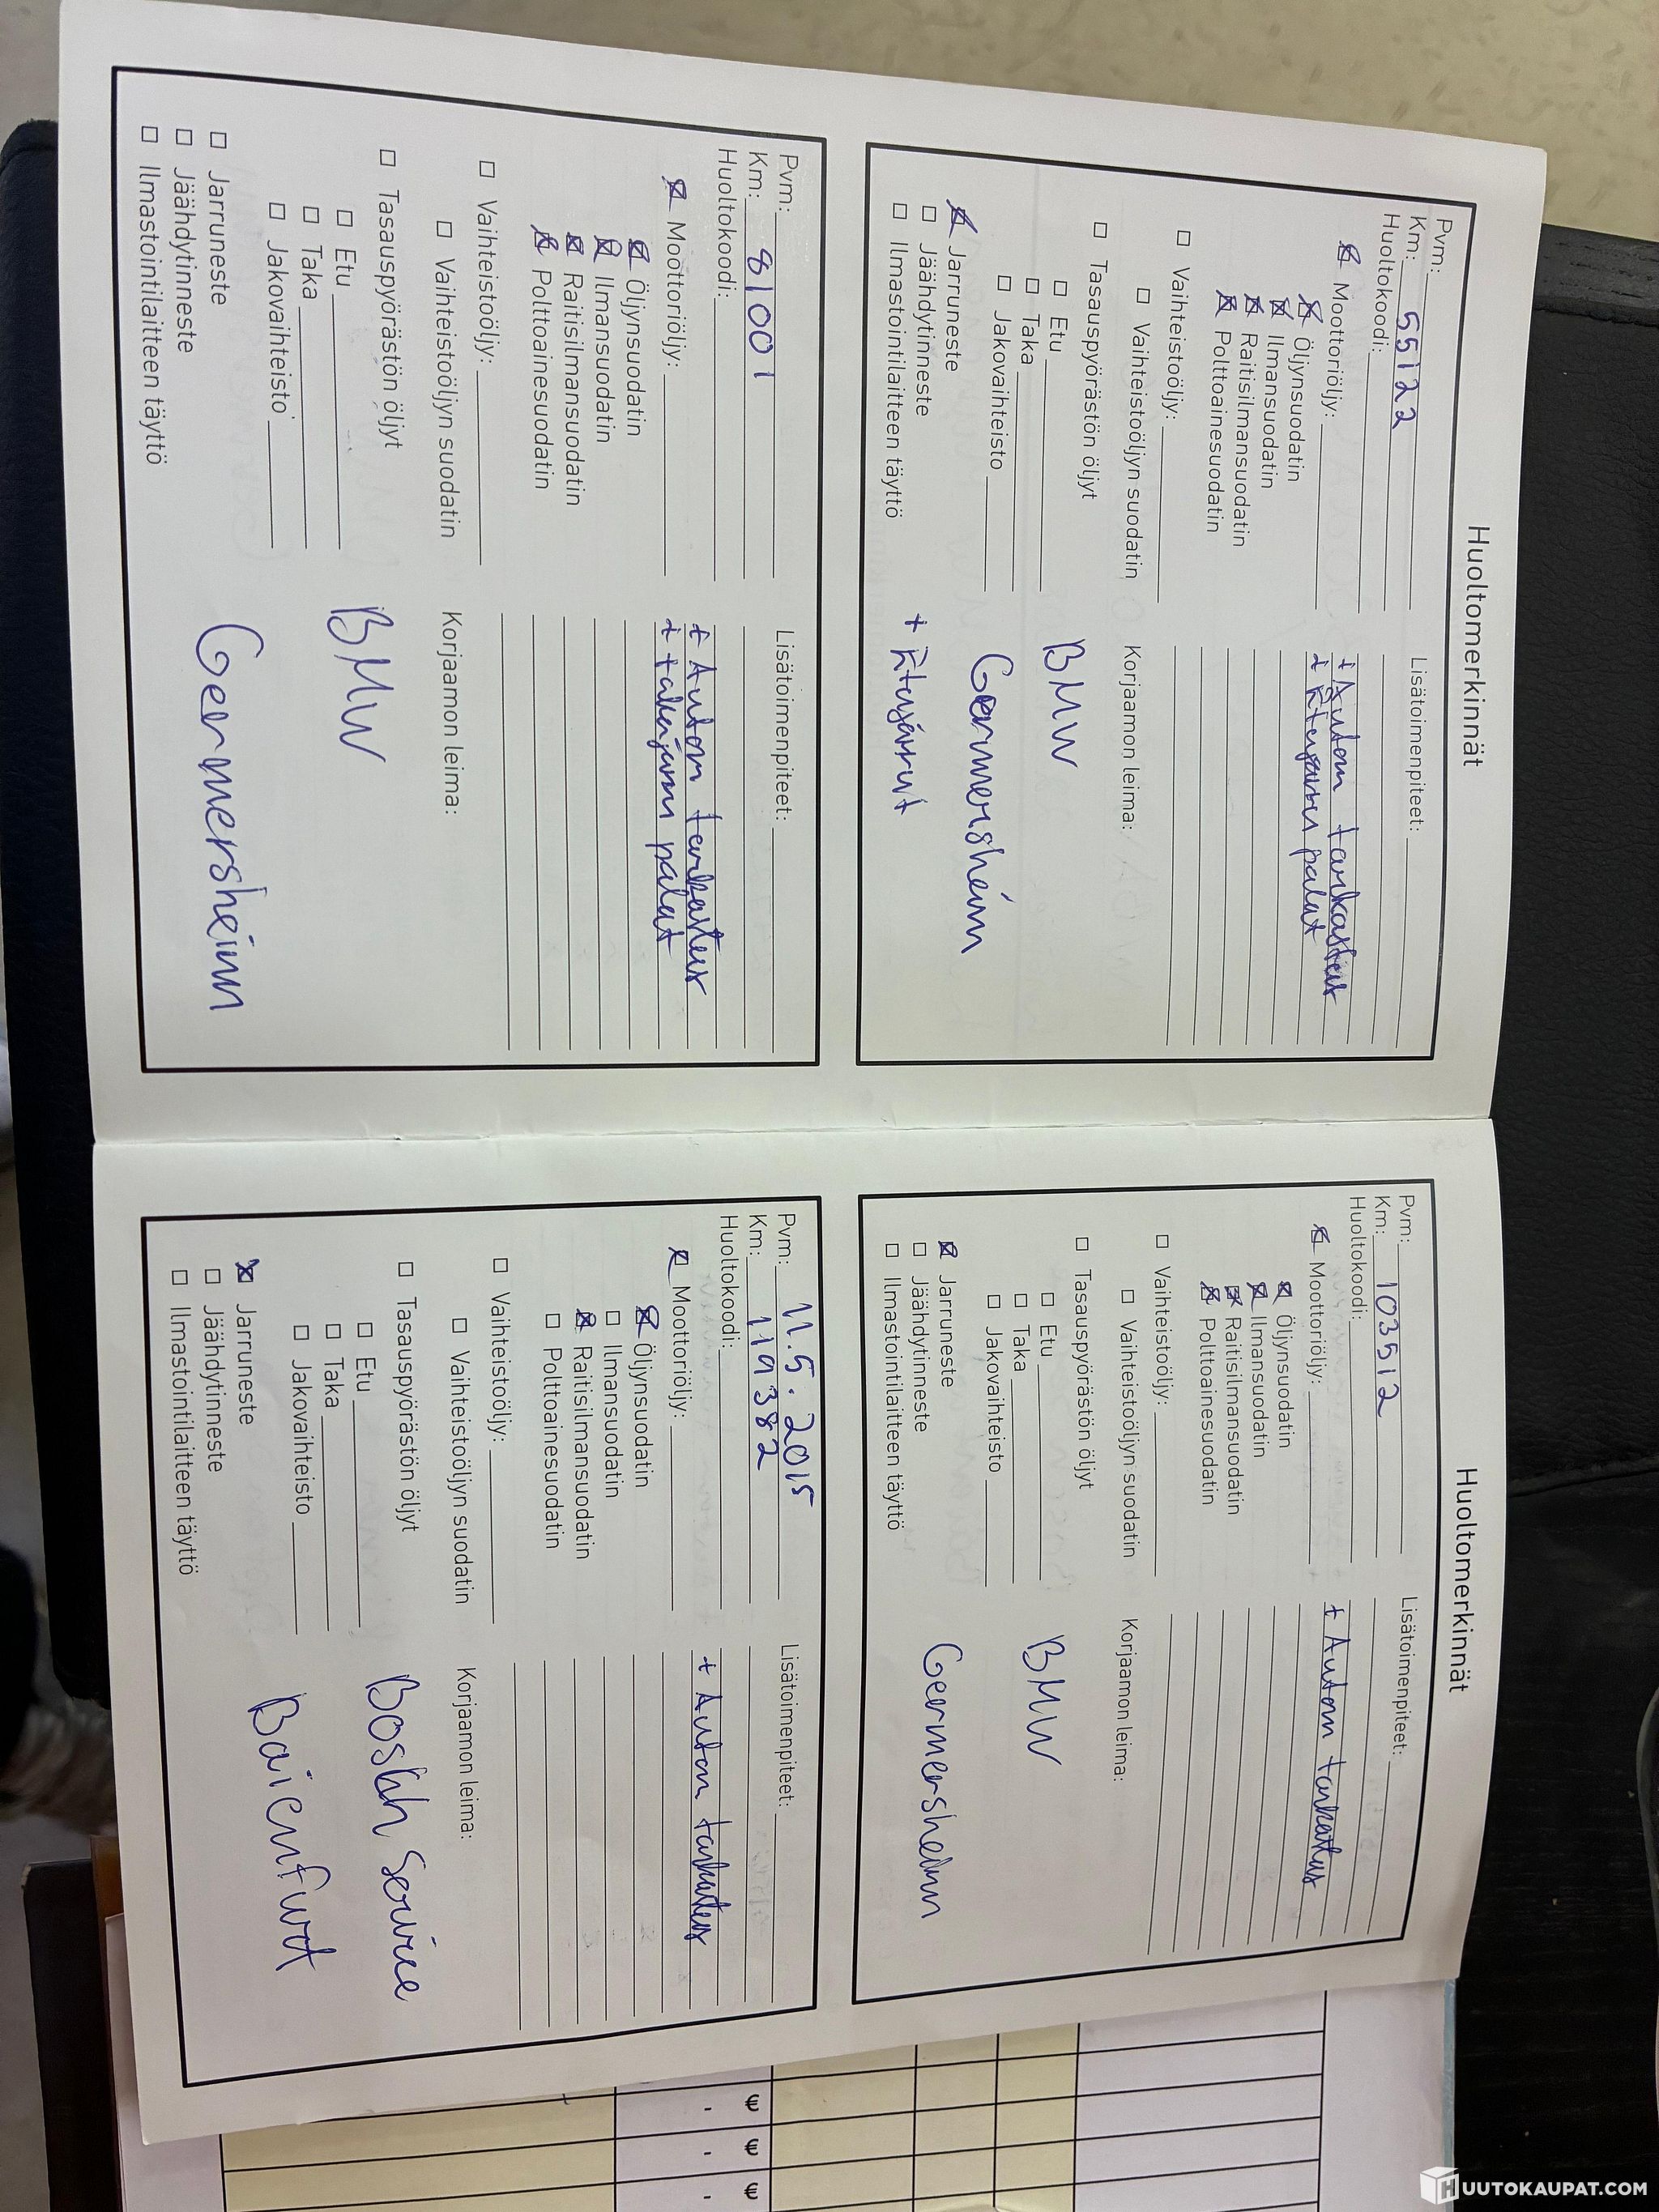 Huoltomerkinnät
Pvm:
Km: 55122
Huoltokoodi:
☒ Moottoriöljy:
☒ Öljynsuodatin
☒ Ilmansuodatin
☒ Raitisilmansuodatin
☒ Polttoainesuodatin
☐ Vaihteistoöljy:
☐ Vaihteistoöljyn suodatin
☐ Tasauspyörästön öljyt
☐ Etu
☐ Taka
☐ Jakovaihteisto
☒ Jarruneste
☐ Jäähdytinneste
☐ Ilmastointilaitteen täyttö
Lisätoimenpiteet:
+ Auton tarkastus
+ Etujarru palat
Korjaamon leima:
BMW
Germersheim
+ Etujarrut
Pvm:
Km: 81001
Huoltokoodi:
☒ Moottoriöljy:
☒ Öljynsuodatin
☒ Ilmansuodatin
☒ Raitisilmansuodatin
☒ Polttoainesuodatin
☐ Vaihteistoöljy:
☐ Vaihteistoöljyn suodatin
☐ Tasauspyörästön öljyt
☐ Etu
☐ Taka
☐ Jakovaihteisto
☐ Jarruneste
☐ Jäähdytinneste
☐ Ilmastointilaitteen täyttö
Lisätoimenpiteet:
+ Auton tarkastus
+ takajarru palat
Korjaamon leima:
BMW
Germersheim
Huoltomerkinnät
Pvm:
Km: 103512
Huoltokoodi:
☒ Moottoriöljy:
☒ Öljynsuodatin
☒ Ilmansuodatin
☒ Raitisilmansuodatin
☒ Polttoainesuodatin
☐ Vaihteistoöljy:
☐ Vaihteistoöljyn suodatin
☐ Tasauspyörästön öljyt
☐ Etu
☐ Taka
☐ Jakovaihteisto
☒ Jarruneste
☐ Jäähdytinneste
☐ Ilmastointilaitteen täyttö
Lisätoimenpiteet:
+ Auton tarkastus
Korjaamon leima:
BMW
Germersheim
Pvm: 11.5.2015
Km: 119382
Huoltokoodi:
☒ Moottoriöljy:
☒ Öljynsuodatin
☐ Ilmansuodatin
☒ Raitisilmansuodatin
☐ Polttoainesuodatin
☐ Vaihteistoöljy:
☐ Vaihteistoöljyn suodatin
☐ Tasauspyörästön öljyt
☐ Etu
☐ Taka
☐ Jakovaihteisto
☒ Jarruneste
☐ Jäähdytinneste
☐ Ilmastointilaitteen täyttö
Lisätoimenpiteet:
+ Auton tarkastus
Korjaamon leima:
Boshh Service
Baienfurt
€ -
€ -
€ -
HUUTOKAUPAT.COM